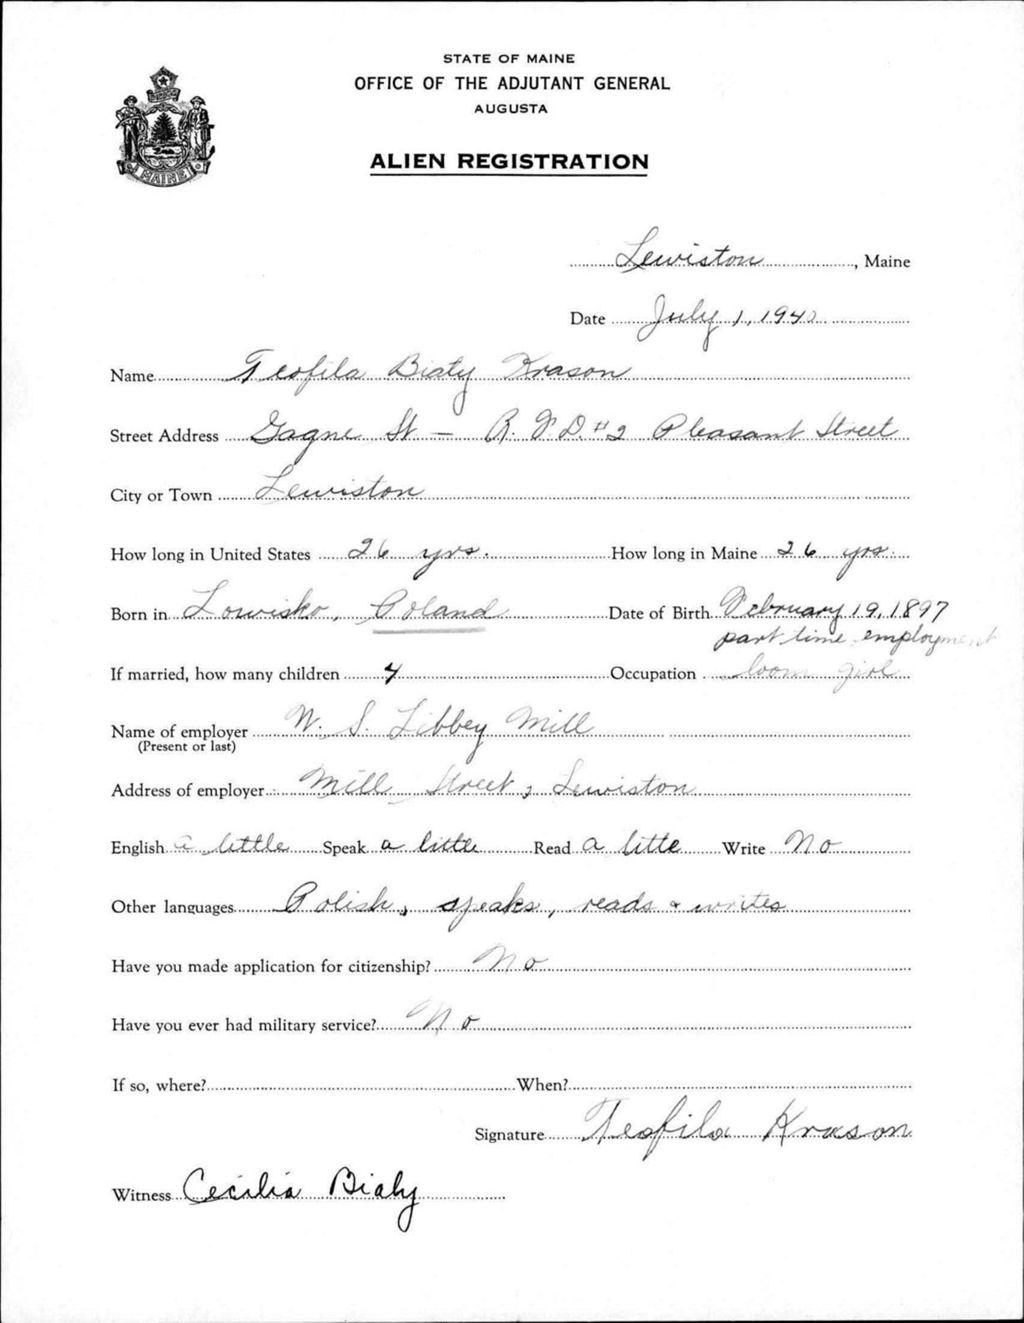 STATE OF MAINE
OFFICE OF THE ADJUTANT GENERAL
AUGUSTA
ALIEN REGISTRATION
MAINE
Lewiston, Maine
Date July 1, 1940
Name Teofila Bialy Krason
Street Address Gagne St - R.F.D. #2 Pleasant Street
City or Town Lewiston
How long in United States 26 yrs. How long in Maine 26 yrs.
Born in Lowisko, Poland Date of Birth February 19, 1897
part time employment
If married, how many children 4 Occupation loom girl
Name of employer W. S. Libbey Mill
(Present or last)
Address of employer Mill Street, Lewiston
English a little Speak a little Read a litte Write No
Other languages Polish, speaks, reads & writes
Have you made application for citizenship? No
Have you ever had military service? No
If so, where? When?
Signature Teofila Krason
Witness Cecilia Bialy